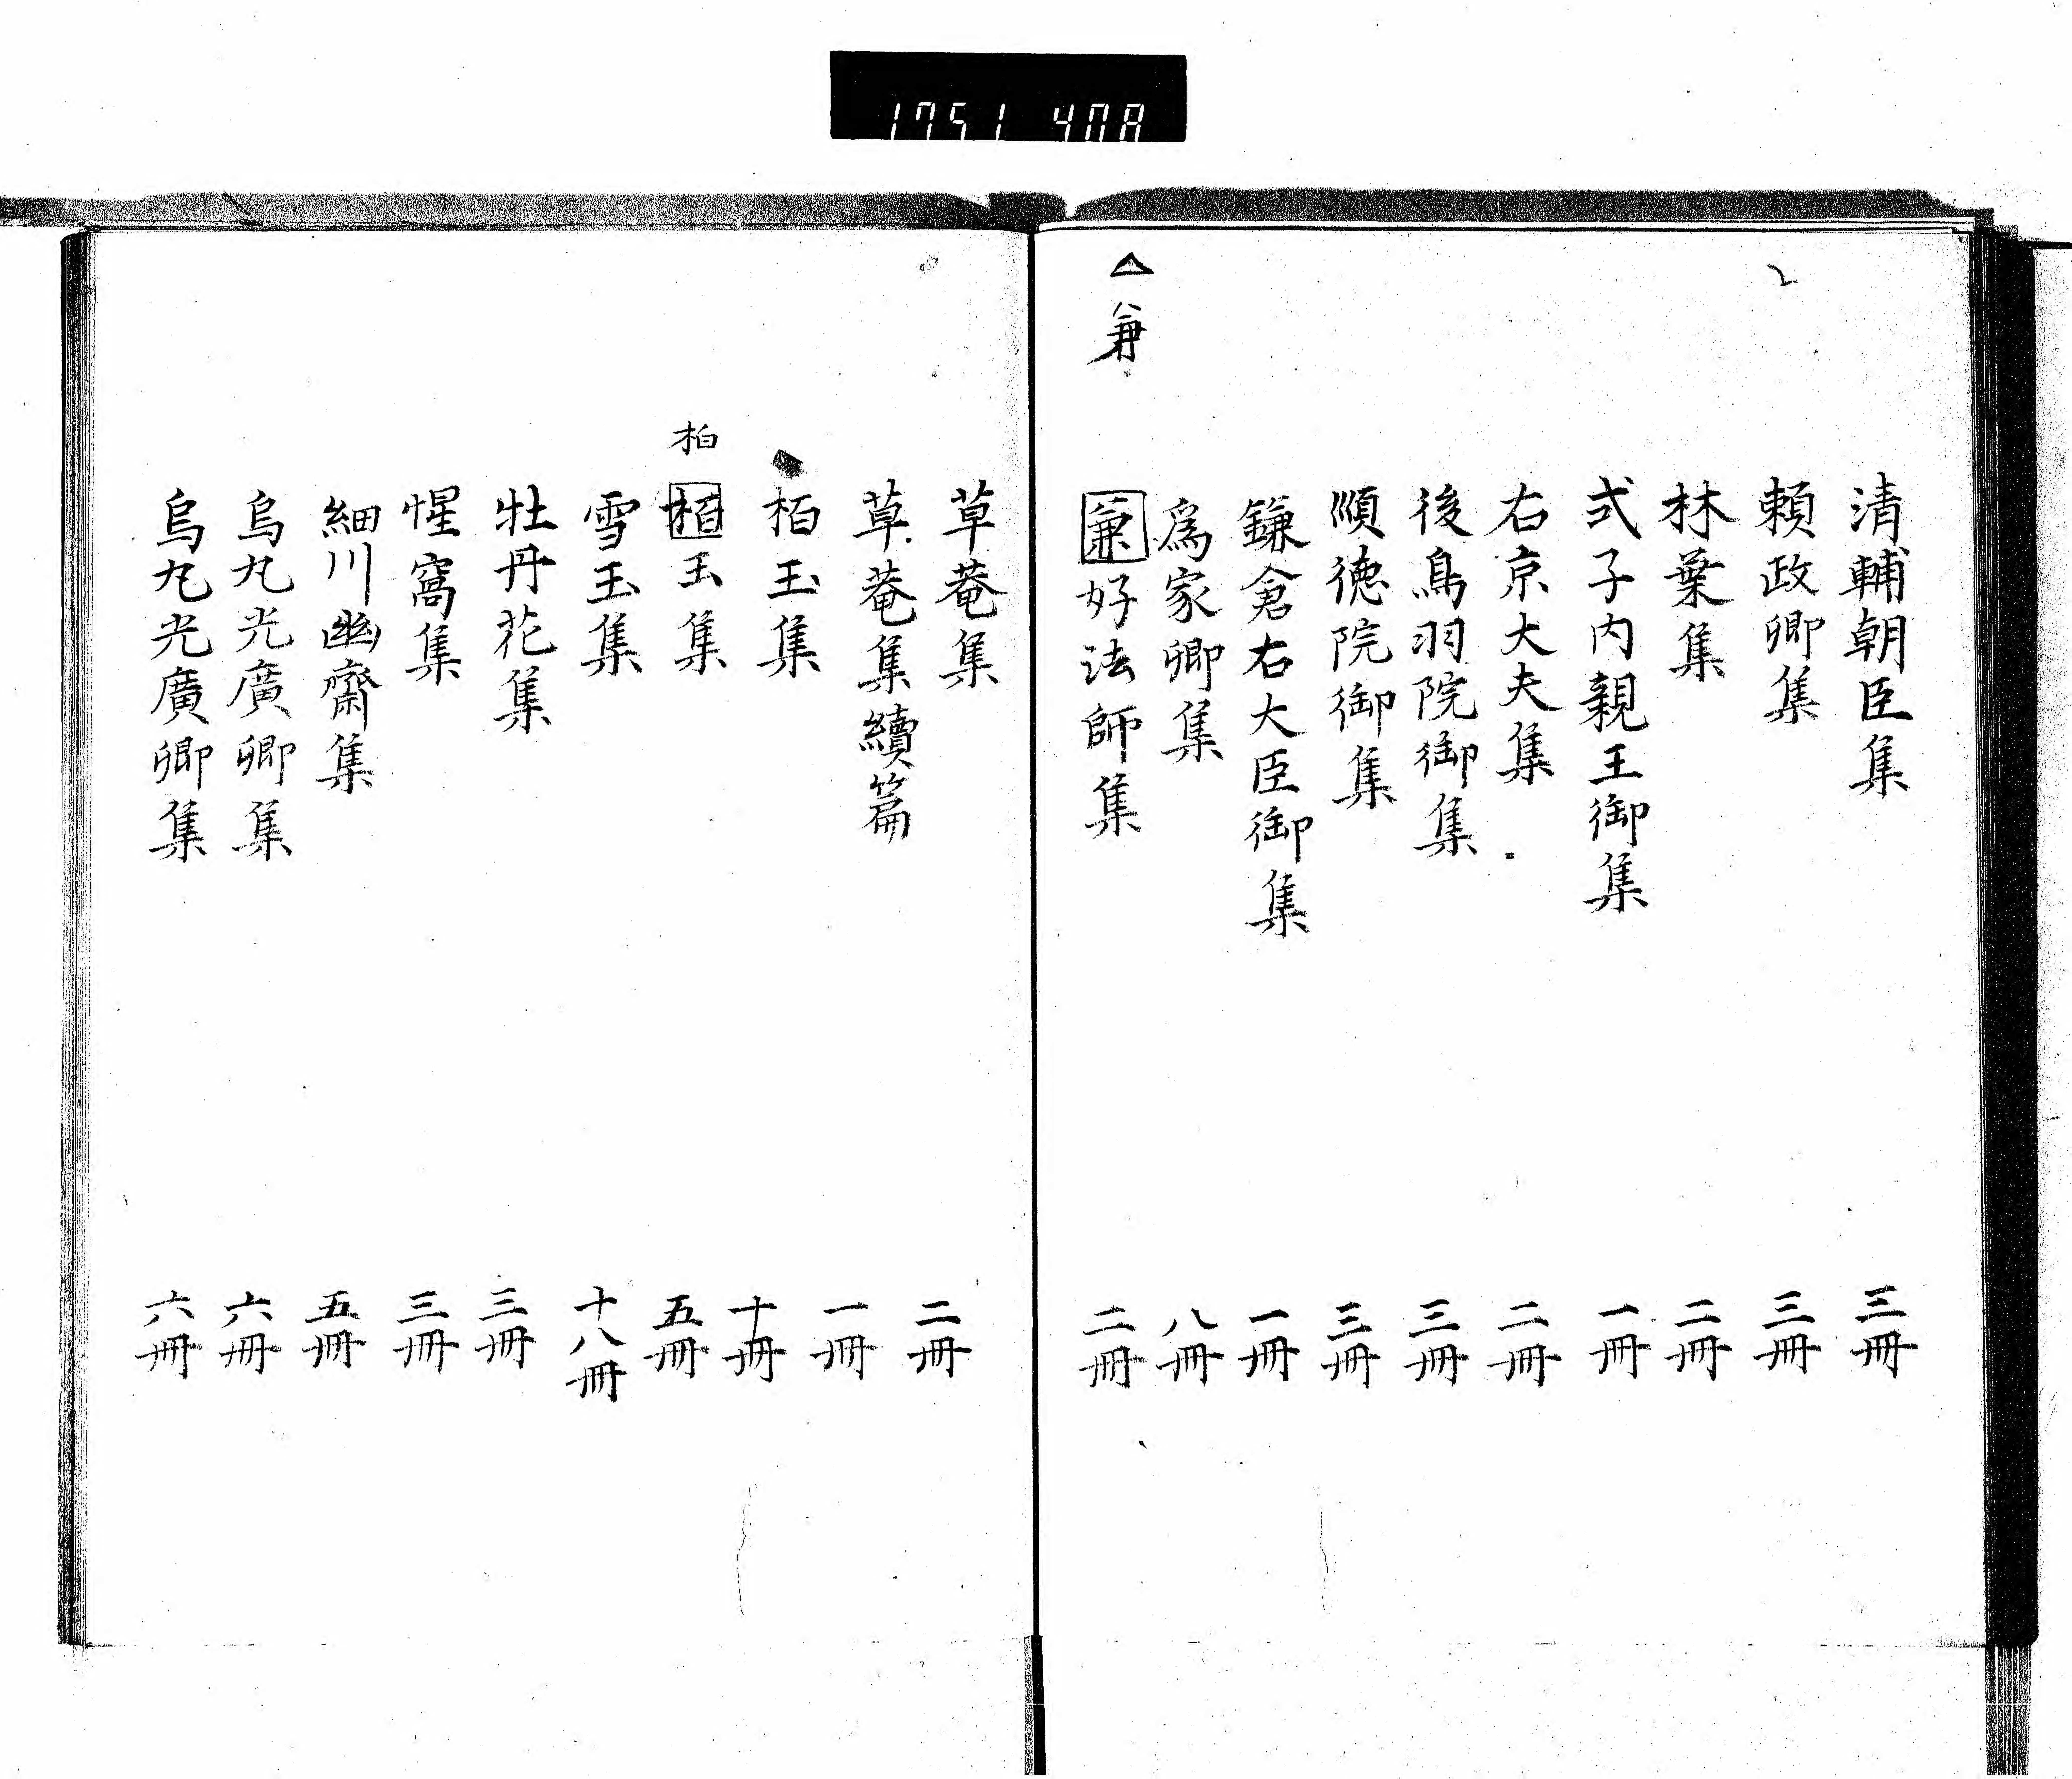 1751 408
清輔朝臣集 三冊
頼政卿集 三冊
林葉集 二冊
式子内親王御集 一冊
右京大夫集 二冊
後鳥羽院御集 三冊
順徳院御集 三冊
鎌倉右大臣御集 一冊
為家卿集 八冊
△ 兼
兼好法師集 二冊
草菴集 二冊
草菴集續篇 一冊
栢玉集 十冊
柏
栢玉集 五冊
雪玉集 十八冊
牡丹花集 三冊
惺窩集 三冊
細川幽齋集 五冊
烏丸光廣卿集 六冊
烏丸光廣卿集 六冊